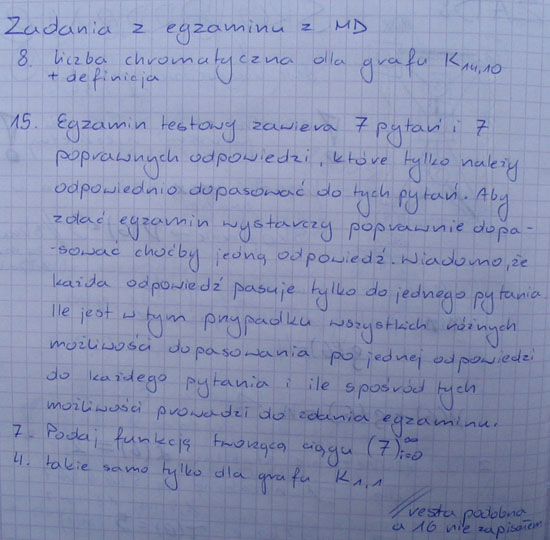 Zadania z egzaminu z MD
8. liczba chromatyczna dla grafu K14,10
+ definicja
15. Egzamin testowy zawiera 7 pytań i 7
poprawnych odpowiedzi, które tylko należy
odpowiednio dopasować do tych pytań. Aby
zdać egzamin wystarczy poprawnie dopa-
-sować choćby jedną odpowiedź. Wiadomo, że
każda odpowiedź pasuje tylko do jednego pytania
Ile jest w tym przypadku wszystkich różnych
możliwości dopasowania po jednej odpowiedzi
do każdego pytania i ile spośród tych
możliwości prowadzi do zdania egzaminu.
7. Podaj funkcję tworzącą ciągu (7)∞i=0
4. takie samo tylko dla grafu K1,1
//reszta podobna
a 16 nie zapisałem